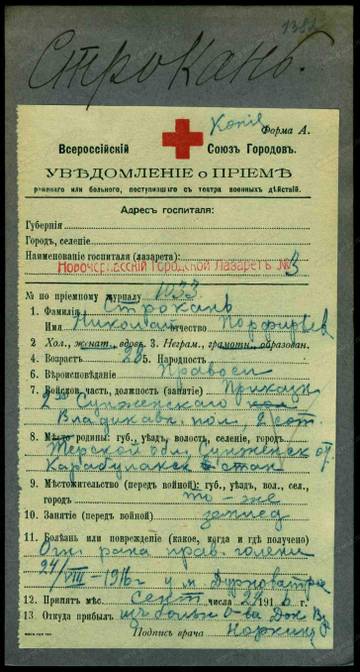 138
Строкань.
Копія
Форма А.
Всероссійскій Союзъ Городовъ.
УВѢДОМЛЕНІЕ о ПРІЕМѢ
раненаго или больного, поступившаго съ театра военныхъ дѣйствій.
Адресъ госпиталя:
Губернія
Городъ, селеніе
Наименованіе госпиталя (лазарета):
Новочеркасскій Городской Лазаретъ № 3
№ по пріемному журналу 1033
1. Фамилія Строкань
Имя Николай отчество Порфирьев
2 Хол., женат., вдовъ. 3. Неграм., грамотн., образован.
4. Возрастъ 28 5. Народность
6. Вѣроисповѣданіе Правосл
7. Войсков. часть, должность (занятіе) Приказн
2 Сунженскаго каз.
Владикавк. пол., 2 сот.
8. Мѣсто родины: губ., уѣздъ, волость, селеніе, городъ
Терской обл. Сунженск от.
Карабулакск стан
9. Мѣстожительство (передъ войной): губ., уѣздъ, вол., сел.,
городъ то-же
10. Занятіе (передъ войной) землед
11. Болѣзнь или поврежденіе (какое, когда и гдѣ получено)
Огн. рана прав. голени
24/VIII-1916 г у м
12. Принятъ мѣс. Сент числа 24 191 6 г.
13. Откуда прибылъ изъ больн О-ва Док
Подпись врача